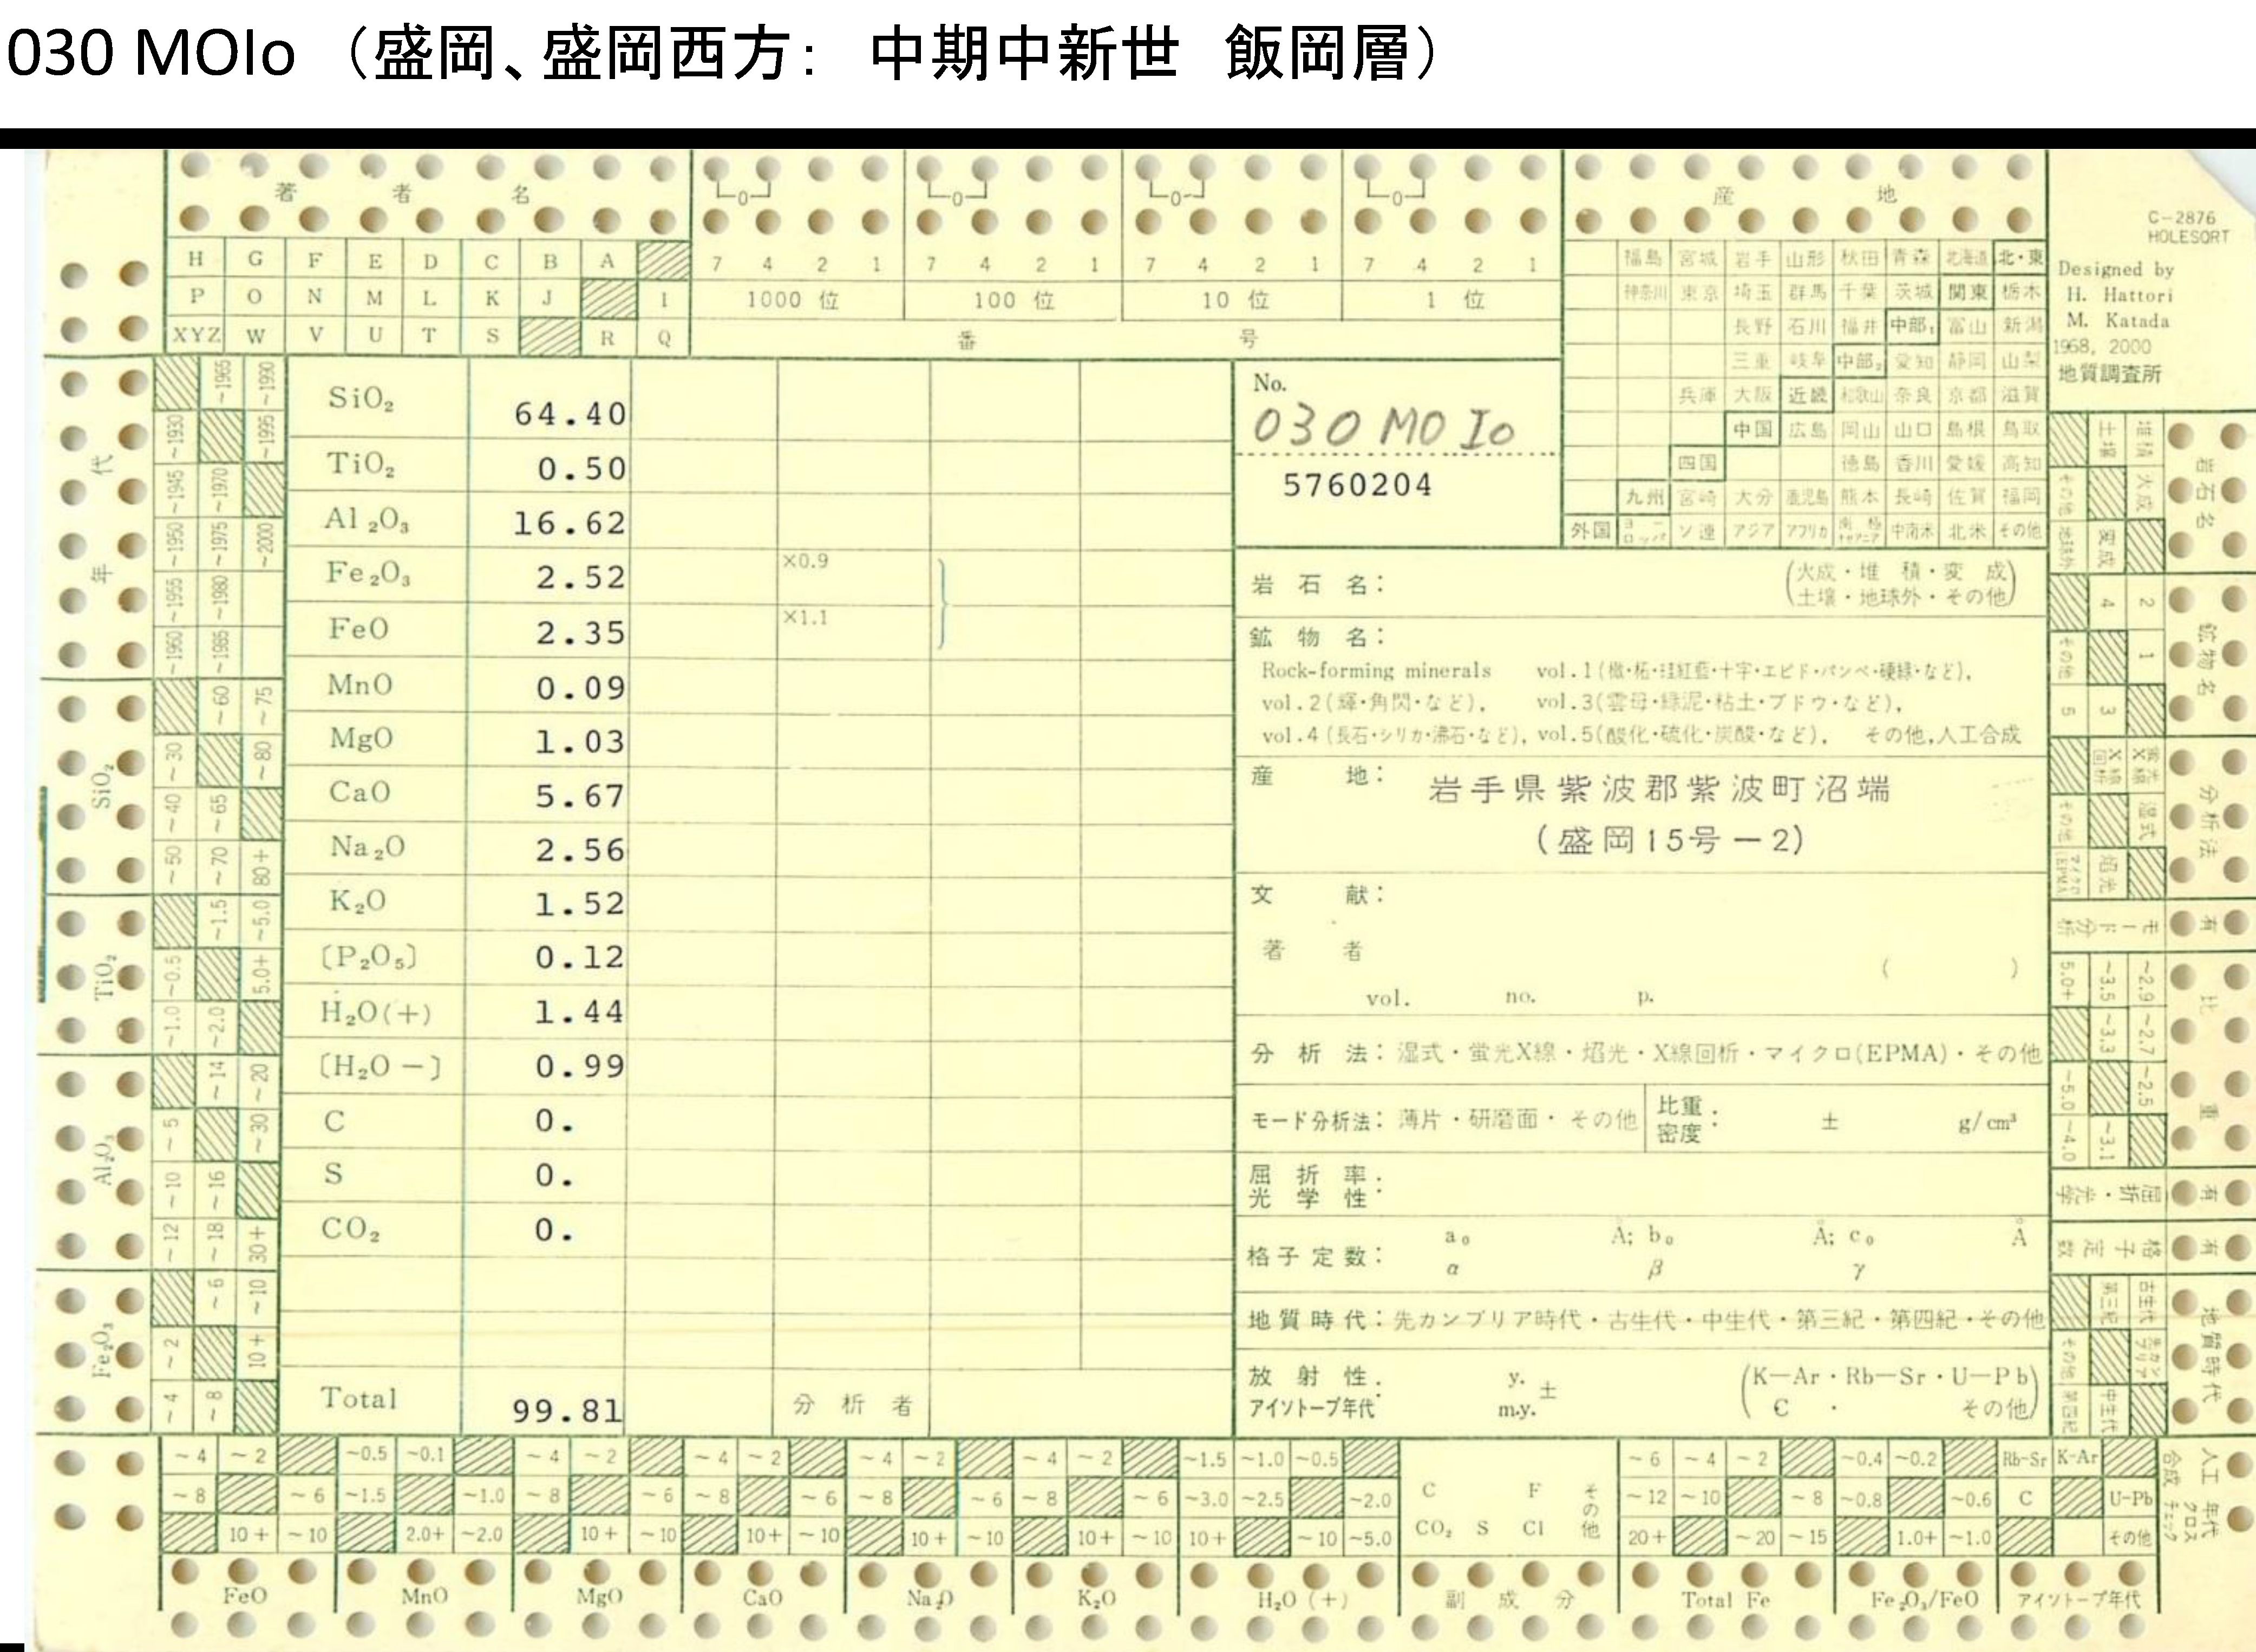 030 MOIo （盛岡、盛岡西方： 中期中新世 飯岡層）
著 者 名
H G F E D C B A
P O N M L K J I
XYZ W V U T S R Q
0 0 0 0
7 4 2 1 7 4 2 1 7 4 2 1 7 4 2 1
1000 位 100 位 10 位 1 位
番 号
産 地
福島 宮城 岩手 山形 秋田 青森 北海道 北・東
神奈川 東京 埼玉 群馬 千葉 茨城 関東 栃木
長野 石川 福井 中部₁ 富山 新潟
三重 岐阜 中部₂ 愛知 静岡 山梨
兵庫 大阪 近畿 和歌山 奈良 京都 滋賀
中国 広島 岡山 山口 島根 鳥取
四国 徳島 香川 愛媛 高知
九州 宮崎 大分 鹿児島 熊本 長崎 佐賀 福岡
外国 ヨーロッパ ソ連 アジア アフリカ 中南米 北米 その他
C-2876
HOLESORT
Designed by
H. Hattori
M. Katada
1968, 2000
地質調査所
No.
030 MO Io
5760204
SiO₂ 64.40
TiO₂ 0.50
Al₂O₃ 16.62
Fe₂O₃ 2.52 ×0.9
FeO 2.35 ×1.1
MnO 0.09
MgO 1.03
CaO 5.67
Na₂O 2.56
K₂O 1.52
〔P₂O₅〕 0.12
H₂O(+) 1.44
〔H₂O −〕 0.99
C 0.
S 0.
CO₂ 0.
Total 99.81 分 析 者
岩 石 名： (火成・堆 積・変 成
土壌・地球外・その他)
鉱 物 名：
Rock-forming minerals vol.1(橄・柘・珪紅藍・十字・エピド・パンペ・硬緑・など),
vol.2(輝・角閃・など), vol.3(雲母・緑泥・粘土・ブドウ・など),
vol.4(長石・シリカ・沸石・など), vol.5(酸化・硫化・炭酸・など), その他,人工合成
産 地： 岩手県紫波郡紫波町沼端
(盛岡15号−2)
文 献：
著 者 ( )
vol. no. p.
分 析 法：湿式・蛍光X線・焰光・X線回析・マイクロ(EPMA)・その他
モード分析法：薄片・研磨面・その他 比重 密度： ± g/cm³
屈 折 率
光 学 性：
格子定数： a₀ Å; b₀ Å; c₀ Å
α β γ
地質時代：先カンブリア時代・古生代・中生代・第三紀・第四紀・その他
放 射 性 y. ± (K—Ar・Rb—Sr・U—Pb
アイソトープ年代： m.y. C ・ その他)
年 代
~1965 ~1990
~1930 ~1995
~1945 ~1970
~1950 ~1975 ~2000
~1955 ~1980
~1960 ~1985
SiO₂
~60 ~75
~30 ~80
~40 ~65
~50 ~70 80+
TiO₂
~1.5 ~5.0
~0.5 5.0+
~1.0 ~2.0
Al₂O₃
~14 ~20
~5 ~30
~10 ~16
~12 ~18 30+
Fe₂O₃
~6 ~10
~2 10+
~4 ~8
岩石名
土壌 堆積
その他 火成
地球外 変成
鉱物名
4 2
その他 1
5 3
分析法
X線回析 蛍光X線
その他 湿式
マイクロ(EPMA) 焰光
モード分析 有
比 重
5.0+ ~3.5 ~2.9
~3.3 ~2.7
~5.0 ~2.5
~4.0 ~3.1
屈折・光学 有
格子定数 有
地質時代
第三紀 古生代
その他 先カンブリア
第四紀 中生代
~4 ~2 ~0.5 ~0.1 ~4 ~2 ~4 ~2 ~4 ~2 ~4 ~2 ~1.5 ~1.0 ~0.5 ~6 ~4 ~2 ~0.4 ~0.2 Rb-Sr K-Ar
~8 ~6 ~1.5 ~1.0 ~8 ~6 ~8 ~6 ~8 ~6 ~8 ~6 ~3.0 ~2.5 ~2.0 C F その他 ~12 ~10 ~8 ~0.8 ~0.6 C U-Pb
10+ ~10 2.0+ ~2.0 10+ ~10 10+ ~10 10+ ~10 10+ ~10 10+ ~10 ~5.0 CO₂ S Cl 20+ ~20 ~15 1.0+ ~1.0 その他
人工合成 年代クロスチェック
FeO MnO MgO CaO Na₂O K₂O H₂O (+) 副 成 分 Total Fe Fe₂O₃/FeO アイソトープ年代